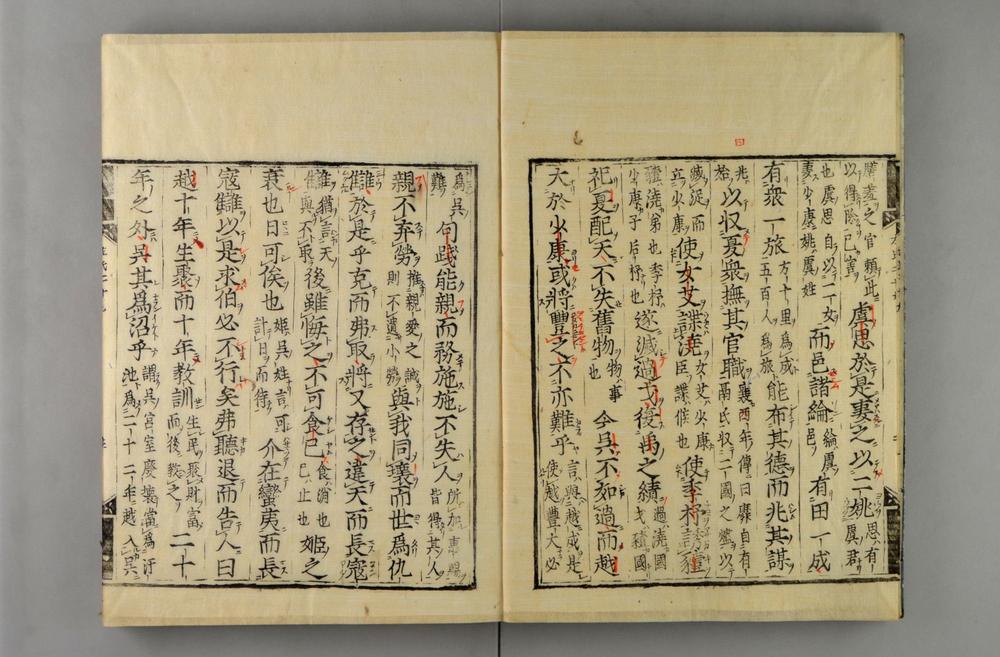 庖羞之官頼此以得除已害虞思於是妻之以二姚思有虞君
也虞思自以二女妻少康姚虞姓而邑諸綸綸虞邑有田一成
有衆一旅方十里為成五百人為旅能布其德而兆其謀
兆始以収夏衆撫其官職襄四年傳曰靡自有鬲氏収二國之燼以
滅浞而立少康使女艾諜澆女艾少康臣諜候也使季杼誘豷
豷澆弟也季杼少康子后杼也遂滅過戈復禹之績過澆國戈豷國
祀夏配天不失舊物物事也今呉不如過而越
大於少康或將豐之不亦難乎言與越成是使越豐大必
為呉難句踐能親而務施施不失人所加惠賜皆得其人
親不弃勞推親愛之誠則不遺小勞與我同壤而世爲仇
讎於是乎克而弗取將又存之違天而長寇
讎猶言天與不取後雖悔之不可食已食消也已止也姬之
衰也日可俟也姬呉姓言可計日而待介在蠻夷而長
寇讎以是求伯必不行矣弗聽退而告人曰
越十年生聚而十年教訓生民聚財富而後教之二十
年之外呉其爲沼乎謂呉宮室廢壊當爲汙池爲二十二年越入呉